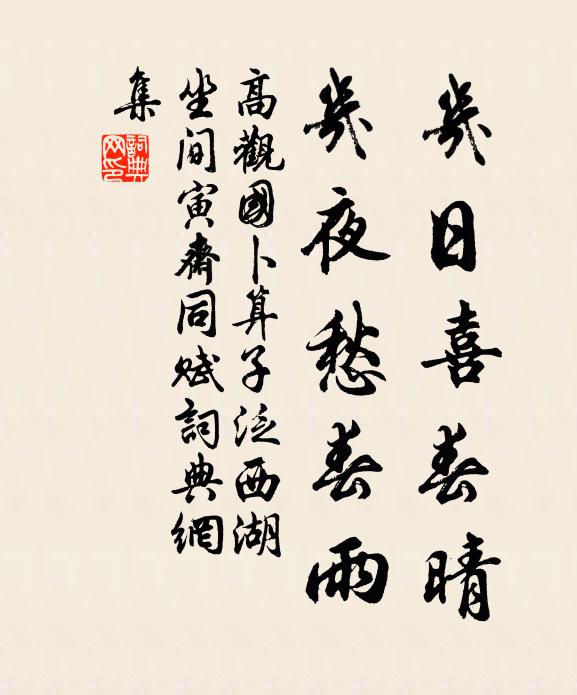 幾日喜春晴
幾夜愁春雨
高觀國卜算子泛西湖
坐间寅齋同赋詞典網
集
詞典
网印